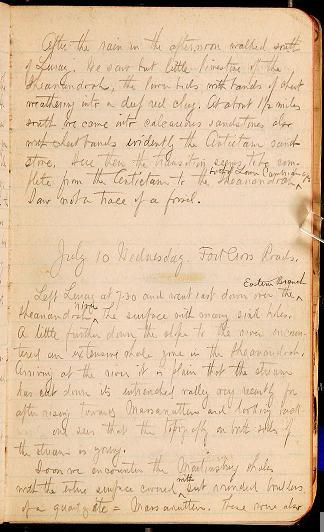 After the rain in the afternoon walked south
of Luray. We saw but little limestone of the
Shenandoah, the lower beds with bands of chert
weathering into a deep red clay. At about 1½ miles
south we came into calcareous sandstones also
with chert bands evidently the Antietam sand-
stone. Here then the transition seems to be com-
plete from the Antietam to the Shenandoah
Saw not a trace of a fossil.
July 10 Wednesday. Fort Cross Roads.
Eastern Branch
Left Luray at 7:30 and went east down over the
Shenandoah river The surface with many sink holes.
A little further down the slope to the river encoun-
tered an extensive shale zone in the Shenandoah.
Arriving at the river it is plain that the stream
has cut down its intrenched valley very recently for
after rising towards Massanutten and looking back
one sees that the topography on both sides of
the stream is young.
Soon we encounter the Martinsburg shales
with the entire surface covered with but rounded boulders
of a quartzite = Massanutten. These were also